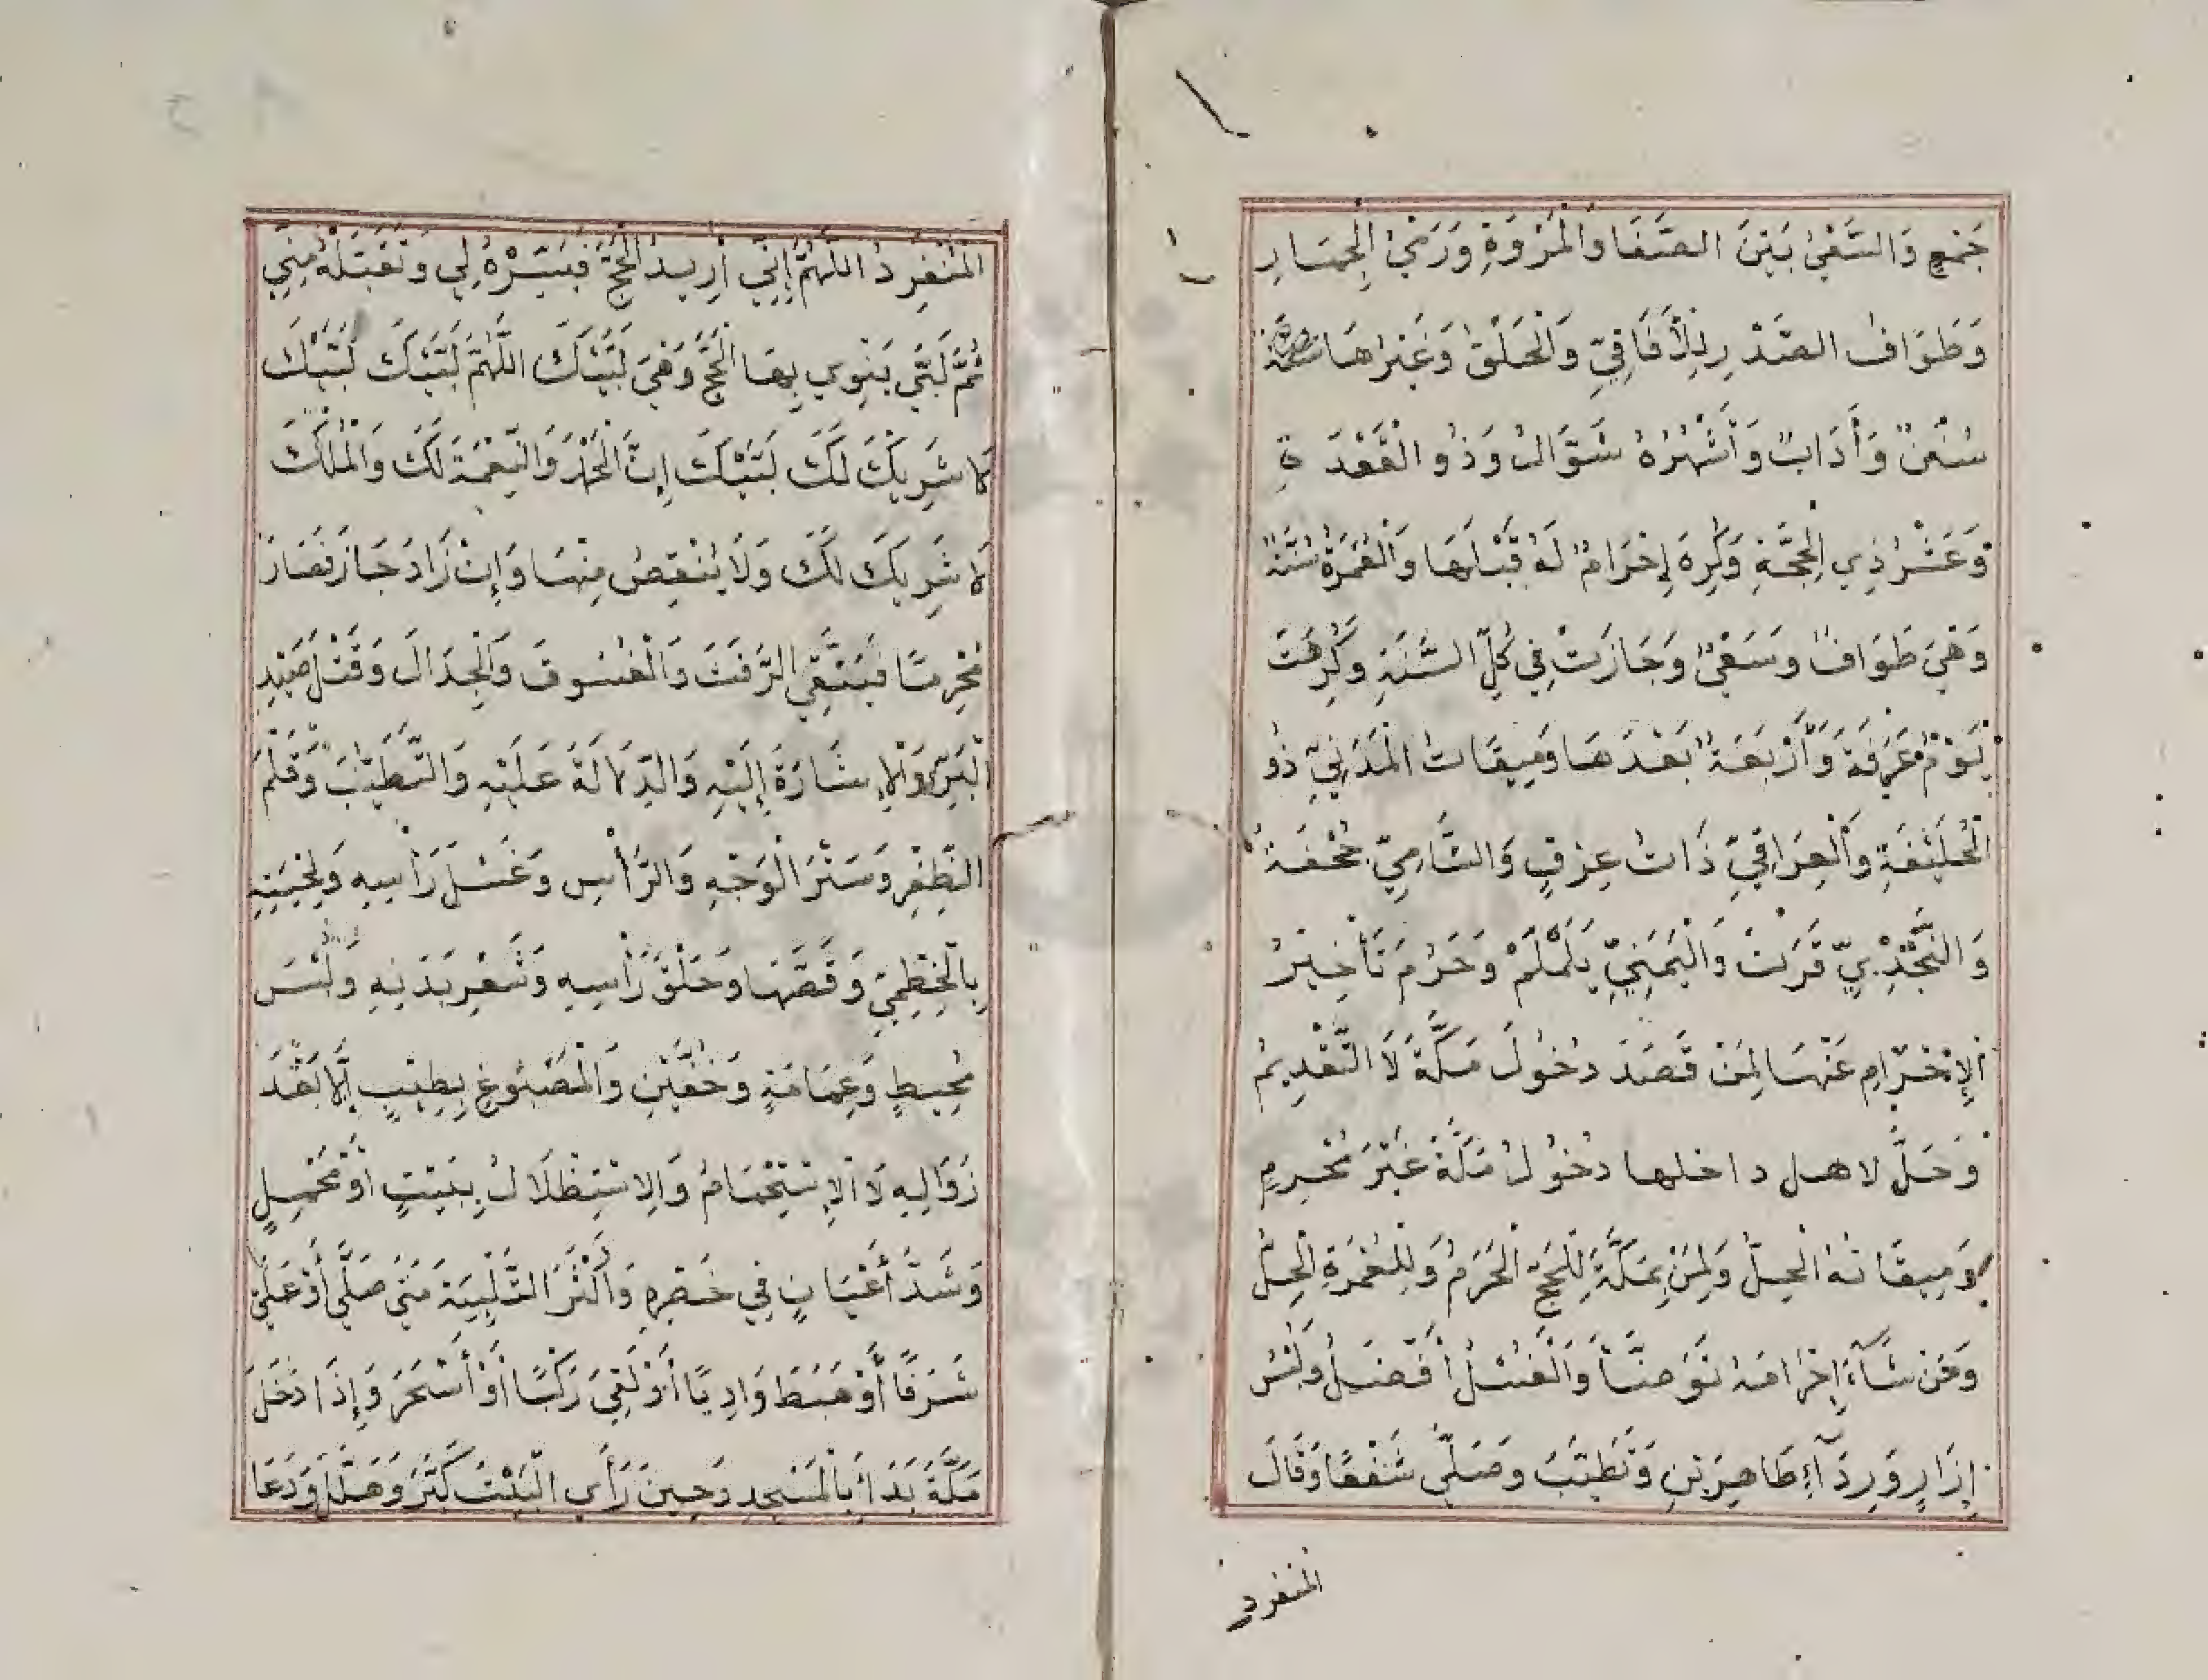 جَمْعٍ وَالسَّعْيُ بَيْنَ الصَّفَا وَالْمَرْوَةِ وَرَمْيُ الْجِمَارِ
وَطَوَافُ الصَّدْرِ لِلْآفَاقِيِّ وَالْحَلْقُ وَغَيْرُهَا
سُنَنٌ وَأَدَابٌ وَأَشْهُرُهُ شَوَّالُ وَذُو الْقَعْدَةِ
وَعَشْرُ ذِي الْحِجَّةِ وَكُرِهَ إِحْرَامٌ لَهُ قَبْلَهَا وَالْعُمْرَةُ سُنَّةٌ
وَهْيَ طَوَافٌ وَسَعْيٌ وَجَازَتْ فِي كُلِّ السَّنَةِ وَكُرِهَتْ
يَوْمَ عَرَفَةَ وَأَرْبَعَةً بَعْدَهَا وَمِيقَاتُ الْمَدَنِيِّ ذُو
الْحُلَيْفَةِ وَالْعِرَاقِيِّ ذَاتُ عِرْقٍ وَالشَّامِيِّ جُحْفَةُ
وَالنَّجْدِيِّ قَرَنْ وَالْيَمَنِيِّ يَلَمْلَمْ وَحَرُمَ تَأْخِيْرُ
الْإِحْرَامِ عَنْهَا لِمَنْ قَصَدَ دُخُولَ مَكَّةَ لَا التَّقْدِيمُ
وَحَلَّ لاهل داخلها دُخُولُ مَكَّةَ غَيْرَ مُحْرِمٍ
وَمِيقَاتُهُ الْحِلُّ وَلِمَنْ بِمَكَّةَ لِلْحَجِّ الْحَرَمُ وَلِلْعُمْرَةِ الْحِلُّ
وَمَنْ شَآءَ إِحْرَامَهُ تَوَضَّأَ وَالْغُسْلُ أَفْضَلُ وَلَبْسُ
إِزَارٍ وَرِدَآءٍ طَاهِرَيْنِ وَتَطَيَّبَ وَصَلَّى شَفْعًا وَقَالَ
المنفرد
الْمُنْفَرِدُ اَللّٰهُمَّ إِنِّي أُرِيدُ الْحَجَّ فَيَسِّرْهُ لِي وَتَقَبَّلْهُ مِنِّي
ثُمَّ لَبَّى يَنْوِي بِهَا الْحَجَّ وَهْيَ لَبَّيْكَ اللّٰهُمَّ لَبَّيْكَ لَبَّيْكَ
لَا شَرِيْكَ لَكَ لَبَّيْكَ إِنَّ الْحَمْدَ وَالنِّعْمَةَ لَكَ وَالْمُلْكَ
لَا شَرِيكَ لَكَ وَلَا يُنْقِصُ مِنْهَا وَإِنْ زَادَ جَازَ فَصَارَ
مُحْرِمًا فَيَتَّقِي الرَّفَثَ وَالْفُسُوقَ وَالْجِدَالَ وَقَتْلَ صَيْدِ
الْبَرِّ وَالْإِشَارَةَ إِلَيْهِ وَالدِّلَالَةَ عَلَيْهِ وَالتَّطَيُّبَ وَقَلْمَ
الظُّفْرِ وَسَتْرَ الْوَجْهِ وَالرَّأْسِ وَغَسْلَ رَأْسِهِ وَلِحْيَتِهِ
بِالْخِطْمِيِّ وَقَصَّهَا وَحَلْقَ رَأْسِهِ وَشَعْرِ بَدَنِهِ وَلُبْسَ
مُحِيطٍ وَعِمَامَةٍ وَخُفَّيْنِ وَالْمَصْبُوغِ بِطِيْبٍ إِلَّا بَعْدَ
زَوَالِهِ لَا الْإِسْتِحْمَامُ وَالِاسْتِظْلَالُ بِبَيْتٍ أَوْ مَحْمِلٍ
وَشَدَّ أَعْيَانٍ فِي خَصْرِهِ وَأَكْثَرَ التَّلْبِيَةَ مَتَى صَلَّى أَوْ عَلَى
شَرَفًا أَوْ هَبَطَ وَادِيًا أَوْ لَقِيَ رَكْبًا أَوْ أَسْحَرَ وَإِذَا دَخَلَ
مَكَّةَ بَدَأَ بِالْمَسْجِدِ وَحِينَ رَأَى الْبَيْتَ كَبَّرَ وَهَلَّلَ وَدَعَا